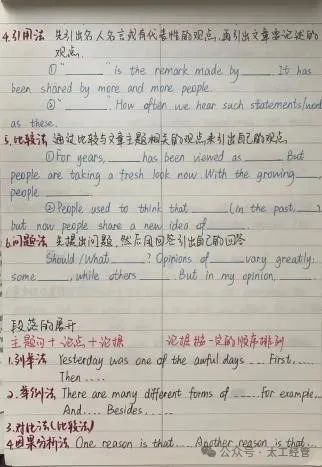 4.引用法 先引出名人名言或有代表性的观点,再引出文章要论述的
观点.
①"______" is the remark made by _____. It has
been shared by more and more people.
②"______". How often we hear such statements/words
as these.
5.比较法 通过比较与文章主题相关的观点来引出自己的观点
①For years, _____ has been viewed as _____. But
people are taking a fresh look now. With the growing____,
people_____
②People used to think that _____(in the past____),
but now people share a new idea of_____.
6.问题法 先提出问题,然后用回答引出自己的回答
Should/What _____? Opinions of ____ vary greatly:
some_____, while others_____. But in my opinion,____
段落的展开
主题句 + 论点 + 论据 论据按一定的顺序排列
1.列举法 Yesterday was one of the awful days ... First, ....
Then ....
2.举例法 There are many different forms of .... for example...
And.... Besides.....
3.对比法(比较法)
4.因果分析法 One reason is that.... Another reason is that...
公众号·太工经管